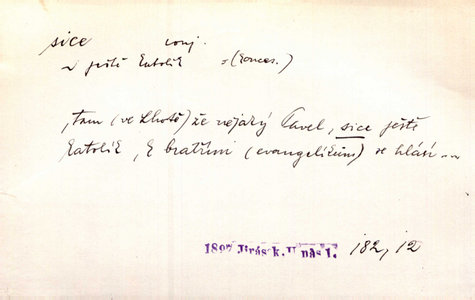 sice conj.
~ ještě katolík s (konces.)
„tam (ve Lhotě) že nějaký Pavel, sice ještě
katolík, k bratřím (evangelíkům) se hlásí ...
1897 Jirásk. U nás 1. 182, 12